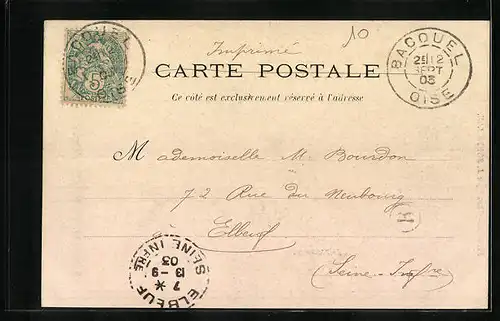 BACQUEL
5
OISE
Imprimé
10
CARTE POSTALE
Ce côté est exclusivement réservé à l'adresse
BACQUEL
12
SEPT
03
OISE
Mademoiselle M. Bourdon
72 Rue du Neubourg
Elbeuf
(Seine-Infre)
H
ELBEUF
7 *
13 - 9
03
SEINE INFRE